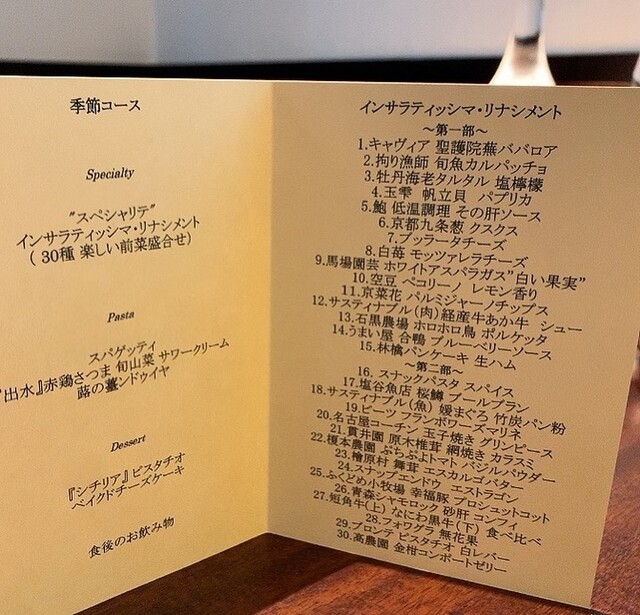 季節コース
Specialty
"スペシャリテ"
インサラティッシマ・リナシメント
( 30種 楽しい前菜盛合せ)
Pasta
スパゲッティ
『出水』赤鶏さつま 旬山菜 サワークリーム
蕗の薹ンドゥイヤ
Dessert
『シチリア』ピスタチオ
ベイクドチーズケーキ
食後のお飲み物
インサラティッシマ・リナシメント
～第一部～
1.キャヴィア 聖護院蕪ババロア
2.拘り漁師 旬魚カルパッチョ
3.牡丹海老タルタル 塩檸檬
4.玉雫 帆立貝 パプリカ
5.鮑 低温調理 その肝ソース
6.京都九条葱 クスクス
7.ブッラータチーズ
8.白苺 モッツァレラチーズ
9.馬場園芸 ホワイトアスパラガス"白い果実"
10.空豆 ペコリーノ レモン香り
11.京菜花 パルミジャーノチップス
12.サスティナブル(肉)経産牛あか牛 シュー
13.石黒農場 ホロホロ鳥 ポルケッタ
14.うまい屋 合鴨 ブルーベリーソース
15.林檎パンケーキ 生ハム
～第二部～
16. スナックパスタ スパイス
17.塩谷魚店 桜鱒 ブールブラン
18.サスティナブル(魚) 媛まぐろ 竹炭パン粉
19.ビーツ フランボワーズマリネ
20.名古屋コーチン 玉子焼き グリンピース
21.貫井園 原木椎茸 網焼き カラスミ
22.榎本農園 ぷちぷよトマト バジルパウダー
23.檜原村 舞茸 エスカルゴバター
24.スナップエンドウ エストラゴン
25.ふくどめ小牧場 幸福豚 プロシュットコット
26.青森シャモロック 砂肝 コンフィ
27.短角牛(上) なにわ黒牛(下) 食べ比べ
28.フォワグラ 無花果
29.ブロンテ ピスタチオ 白レバー
30.高農園 金柑コンポートゼリー